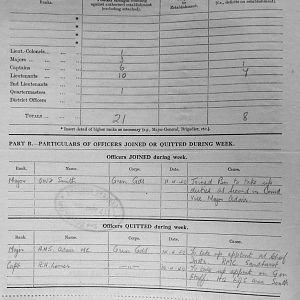 against authorized establishment
(excluding attached).
Establishment.
(i.e., deficits on establishment).
Lieut.-Colonels... ... 1
Majors ... ... 3
Captains ... ... 6 1
Lieutenants ... ... 10 7
2nd Lieutenants ...
Quartermasters ... 1
District Officers ...
TOTALS ... 21 8
* Insert detail of higher ranks as necessary (e.g., Major-General, Brigadier, etc.).
PART B.—PARTICULARS OF OFFICERS JOINED OR QUITTED DURING WEEK.
Officers JOINED during week.
Rank. Name. Corps. Date. Cause.
Major Smith Gren Gds Joined Bn to take up
duties as Second in Comd
Vice Major Adair
Officers QUITTED during week.
Rank. Name. Corps. Date. Cause.
Major Adair MC Gren Gds To take up appoint as Chief
Instr RMC Sandhurst
Capt To take up appoint on Gen
Staff HQ South